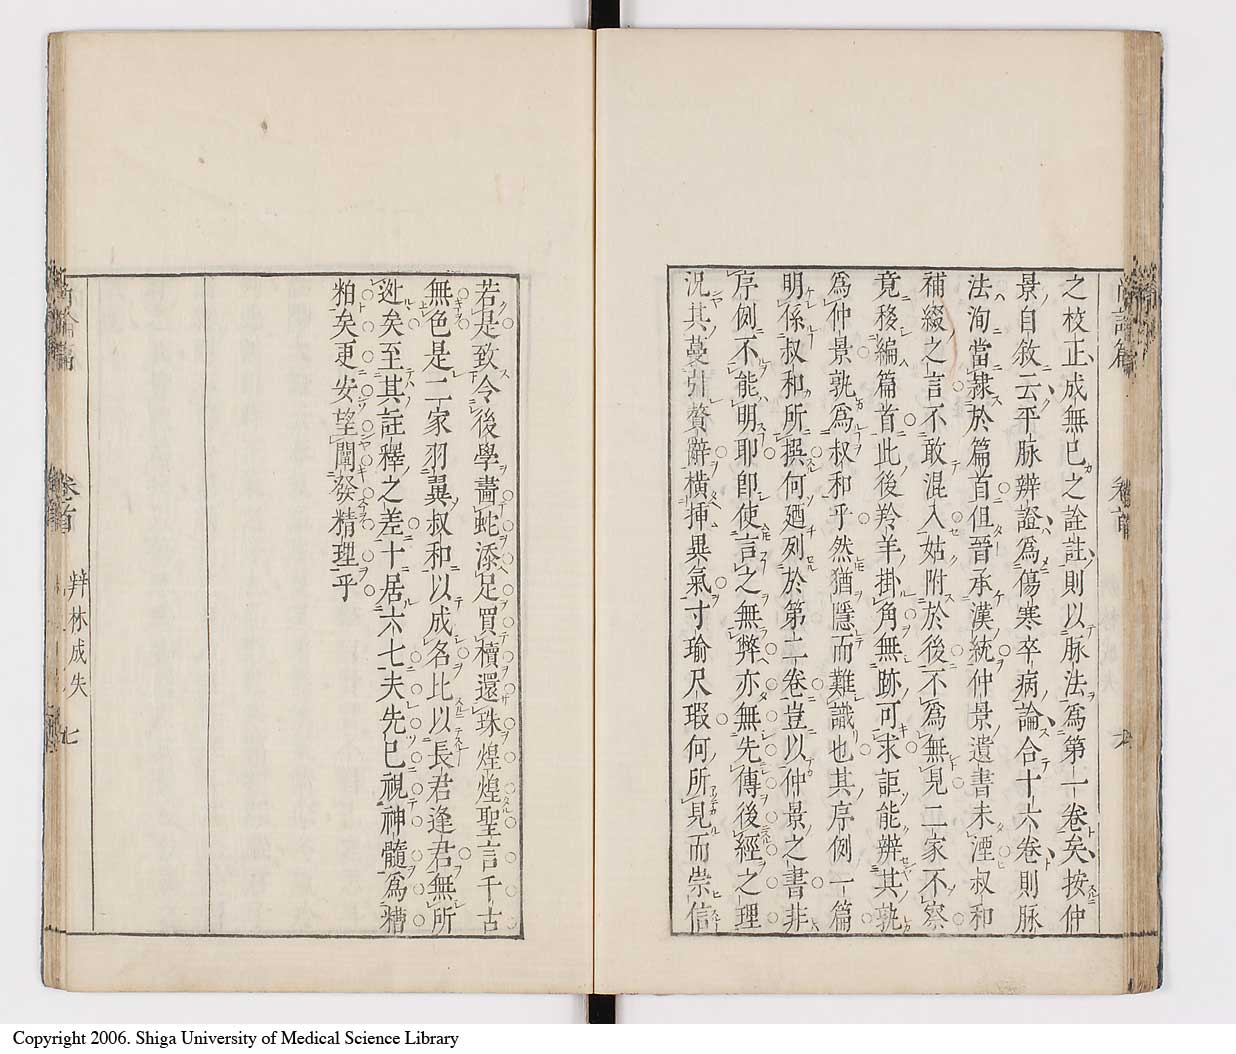 之校正成無已之詮註則以脉法爲第一卷矣按仲
景自敘云平脉辨證爲傷寒卒病論合十六卷則脉
法洵當隷於篇首但晉承漢統仲景遺書未湮叔和
補綴之言不敢混入姑附於後不爲無見二家不察
竟移編篇首此後羚羊掛角無跡可求詎能辨其孰
爲仲景孰爲叔和乎然猶隱而難識也其序例一篇
明係叔和所撰何廼列於第二卷豈以仲景之書非
序例不能明耶卽使言之無弊亦無先傳後經之理
況其蔓引贅辭橫挿異氣寸瑜尺瑕何所見而崇信
若是致令後學畵蛇添足買櫝還珠煌煌聖言千古
無色是二家羽翼叔和以成名比以長君逢君無所
迯矣至其註釋之差十居六七夫先已視神髓爲糟
粕矣更安望闡發精理乎
卷首
辨林成失
七